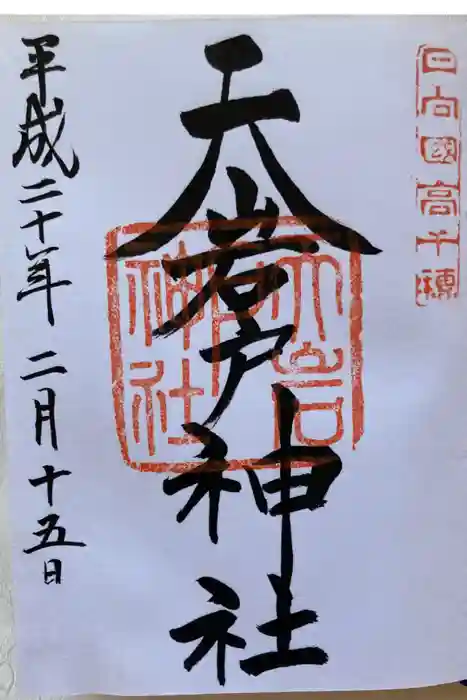 日向國高千穂
天岩戸神社
天岩戸神社
平成二十年二月十五日